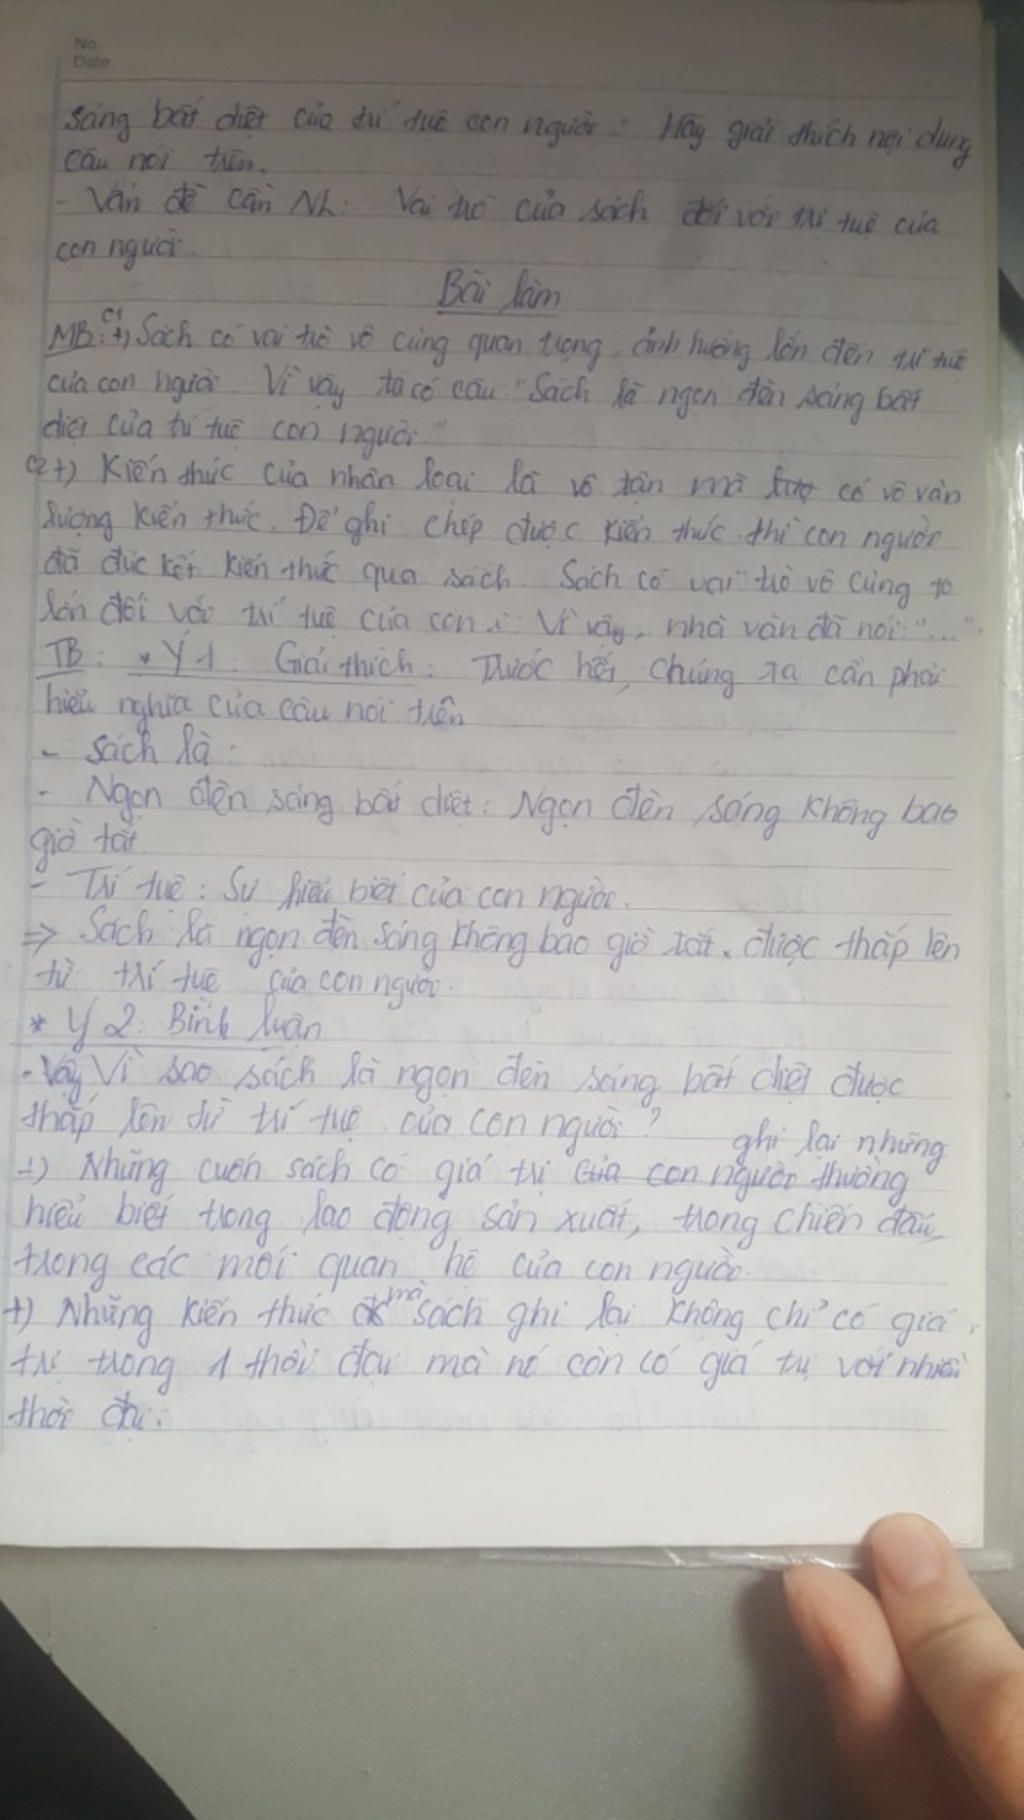 No.
Date
sáng bất diệt của trí tuệ con người" Hãy giải thích nội dung
câu nói trên.
- Vấn đề cần NL: Vai trò của sách đối với trí tuệ của
con người.
Bài làm
MB: C1 +) Sách có vai trò vô cùng quan trọng ảnh hưởng lớn đến trí tuệ
của con người. Vì vậy ta có câu: "Sách là ngọn đèn sáng bất
diệt của trí tuệ con người"
C2 +) Kiến thức của nhân loại là vô tận mà có vô vàn
lượng kiến thức. Để ghi chép được kiến thức thì con người
đã đúc kết kiến thức qua sách. Sách có vai trò vô cùng to
lớn đối với trí tuệ của con Vì vậy, nhà văn đã nói: "..."
TB: * Ý 1: Giải thích: Trước hết, chúng ta cần phải
hiểu nghĩa của câu nói trên
- Sách là:
- Ngọn đèn sáng bất diệt: Ngọn đèn sáng không bao
giờ tắt.
- Trí tuệ: Sự hiểu biết của con người.
=> Sách là ngọn đèn sáng không bao giờ tắt, được thắp lên
từ trí tuệ của con người.
* Ý 2: Bình luận
- Vậy Vì sao sách là ngọn đèn sáng bất diệt được
thắp lên từ trí tuệ của con người?
ghi lại những
+) Những cuốn sách có giá trị của con người thường
hiểu biết trong lao động sản xuất, trong chiến đấu,
trong các mối quan hệ của con người.
+) Những kiến thức mà sách ghi lại không chỉ có giá
trị trong 1 thời đại mà nó còn có giá trị với nhiều
thời đại.